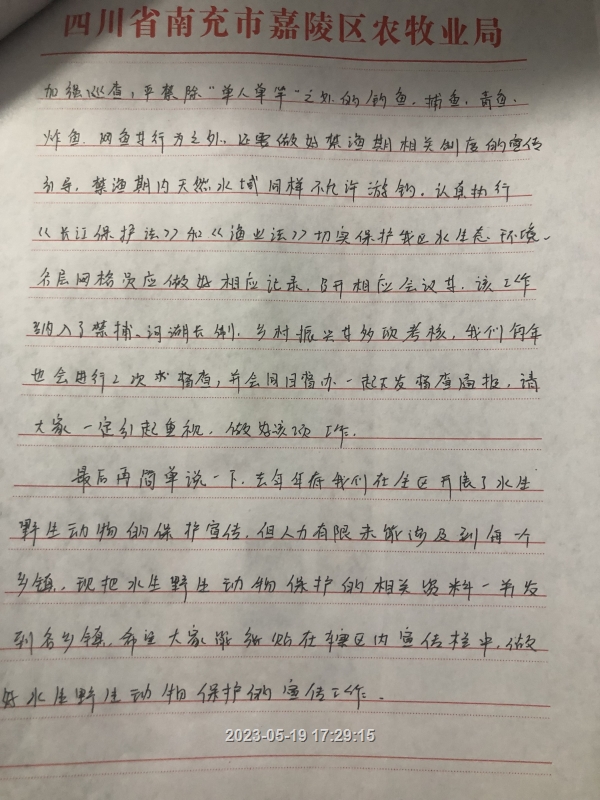 四川省南充市嘉陵区农牧业局
加强巡查，严禁除“单人单竿”之外的钓鱼、捕鱼、毒鱼、
炸鱼、网鱼等行为之外，还需做好禁渔期相关制度的宣传
引导，禁渔期内天然水域同样不允许游钓，认真执行
《长江保护法》和《渔业法》切实保护我区水生态环境。
各层网格员应做好相应记录，召开相应会议等，该工作
纳入了禁捕、河湖长制、乡村振兴等多项考核，我们每年
也会进行2次求督查，并会同目督办一起下发督查通报，请
大家一定引起重视，做好该项工作。
最后再简单说一下，去年年底我们在全区开展了水生
野生动物的保护宣传，但人力有限未能涉及到每一个
乡镇，现把水生野生动物保护的相关资料一并发
到各乡镇，希望大家能够贴在辖区内宣传栏中，做
好水生野生动物保护的宣传工作。
2023-05-19 17:29:15